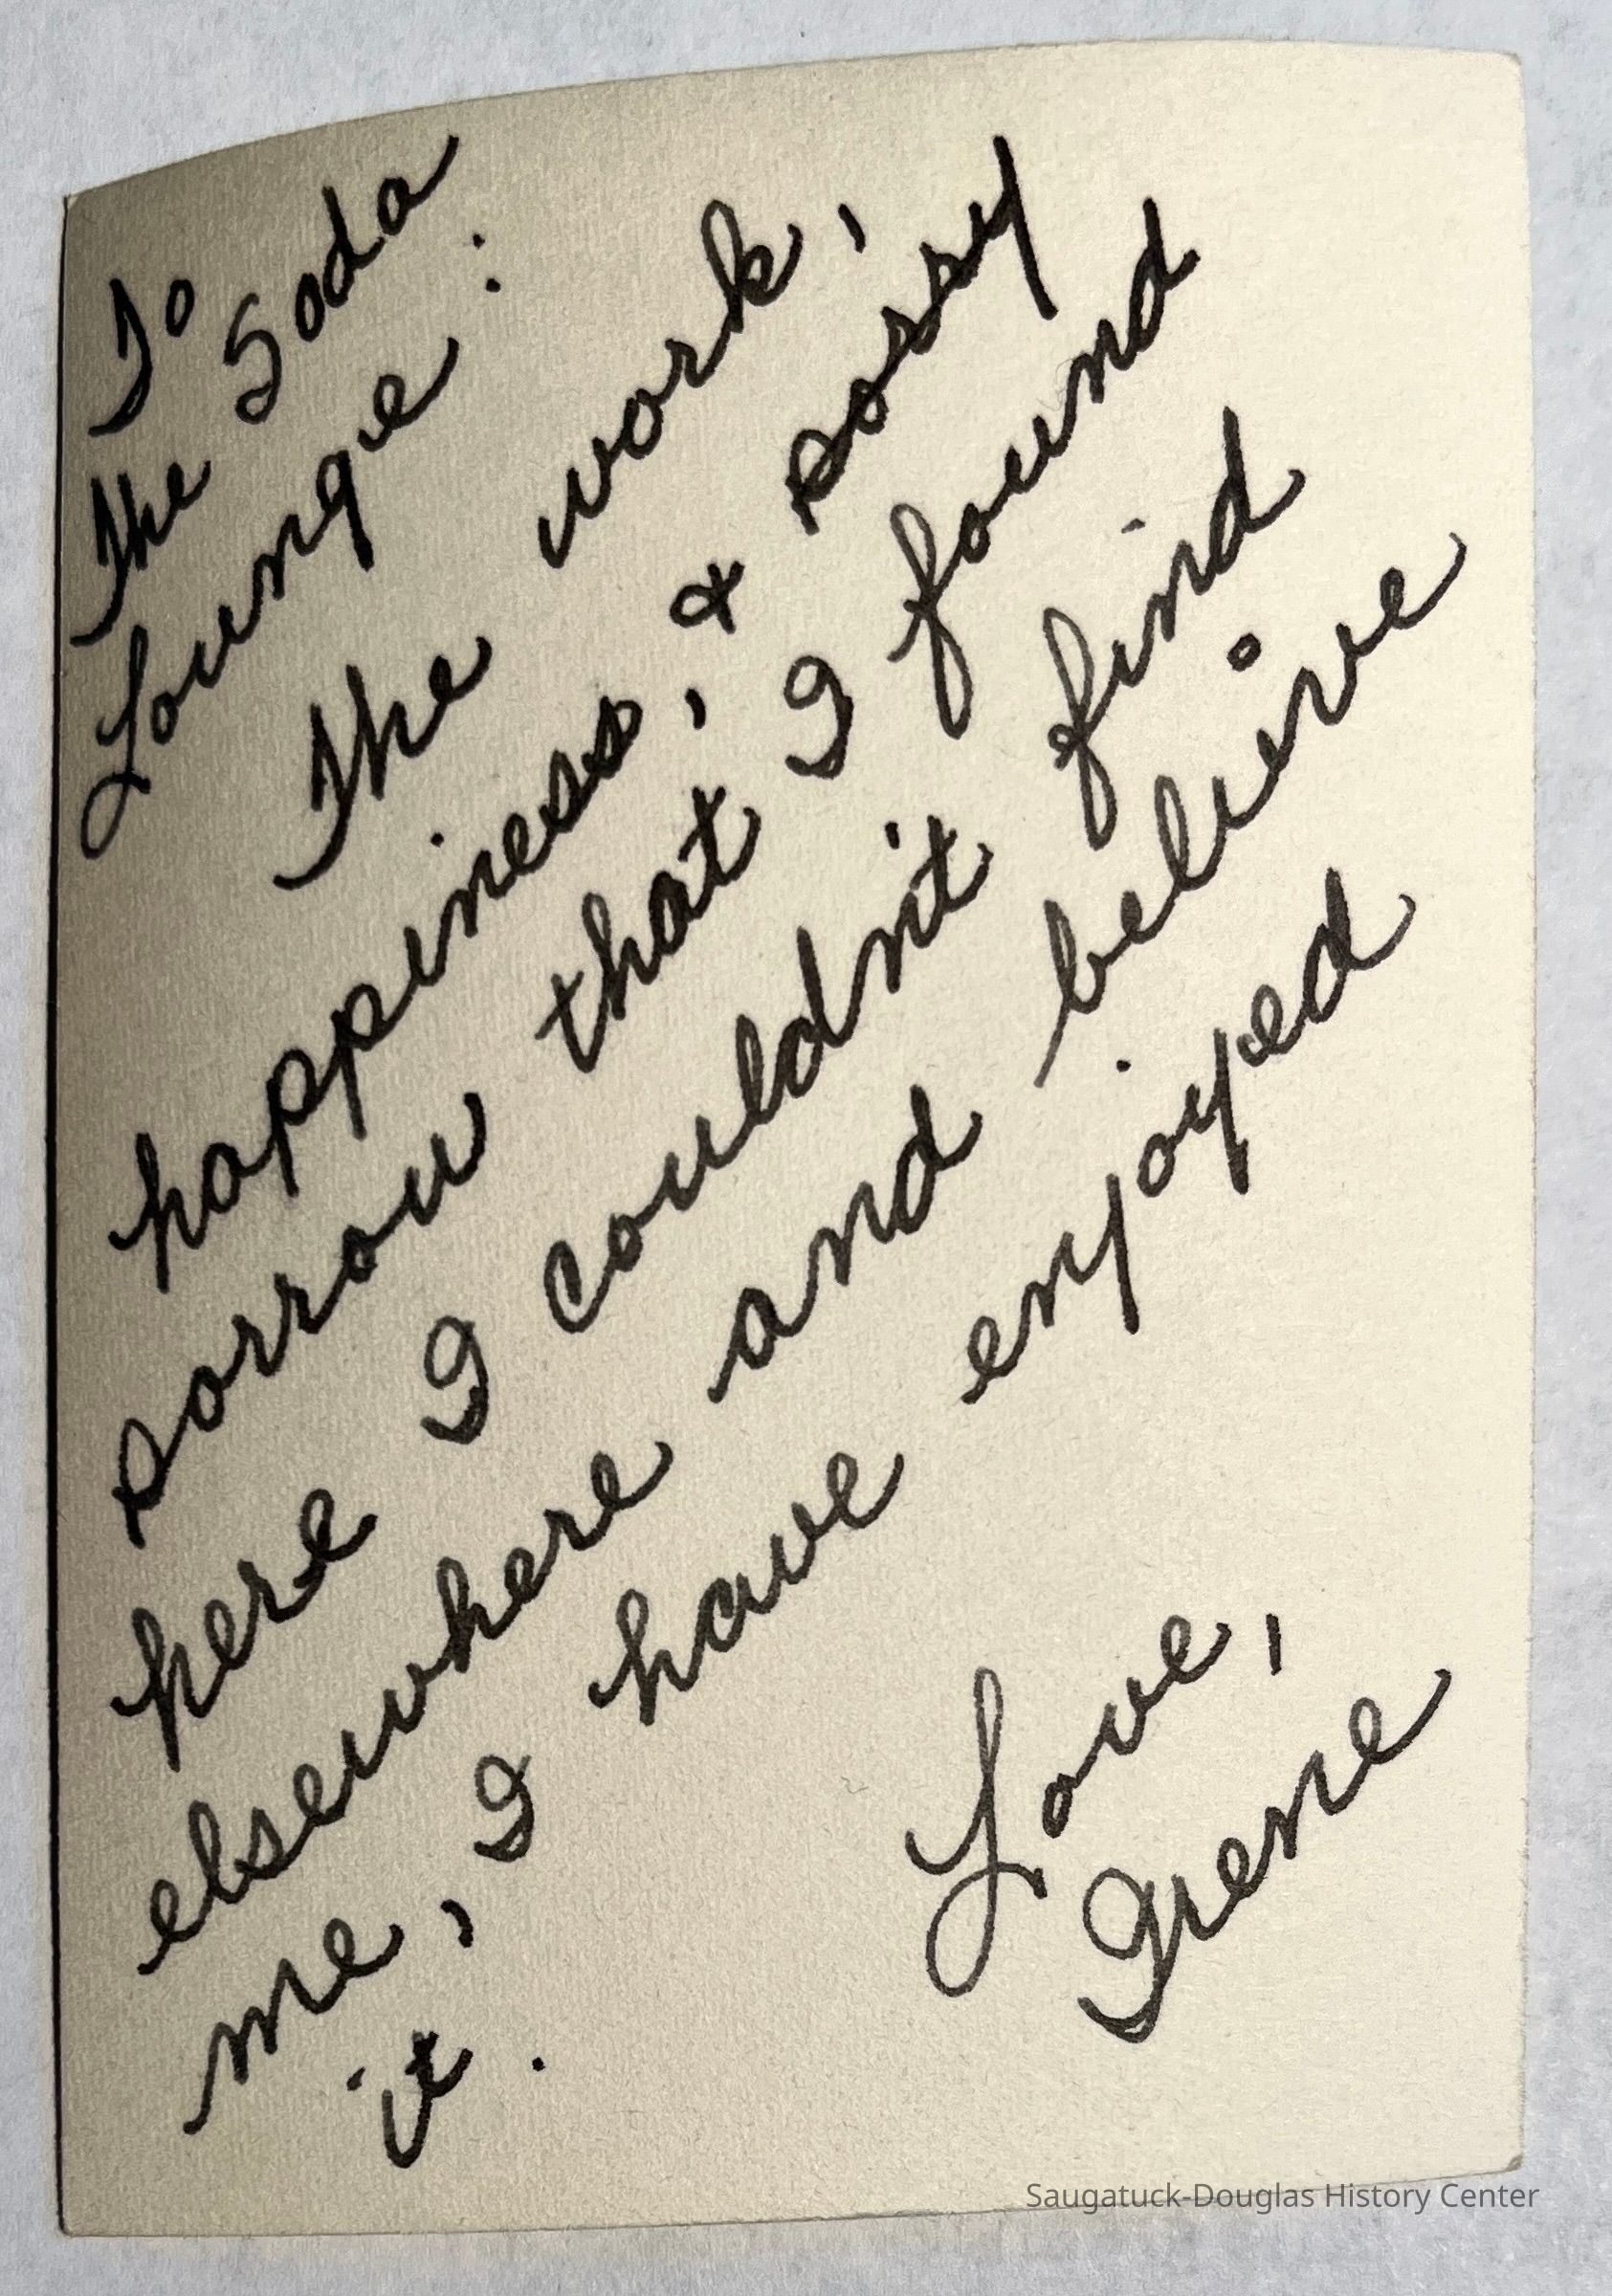 To
The Soda
Lounge:
The work,
happiness, & sorry
sorrow that I found
here I couldn't find
elsewhere and belive
me, I have enjoyed
it.
Love,
Irene
Saugatuck-Douglas History Center